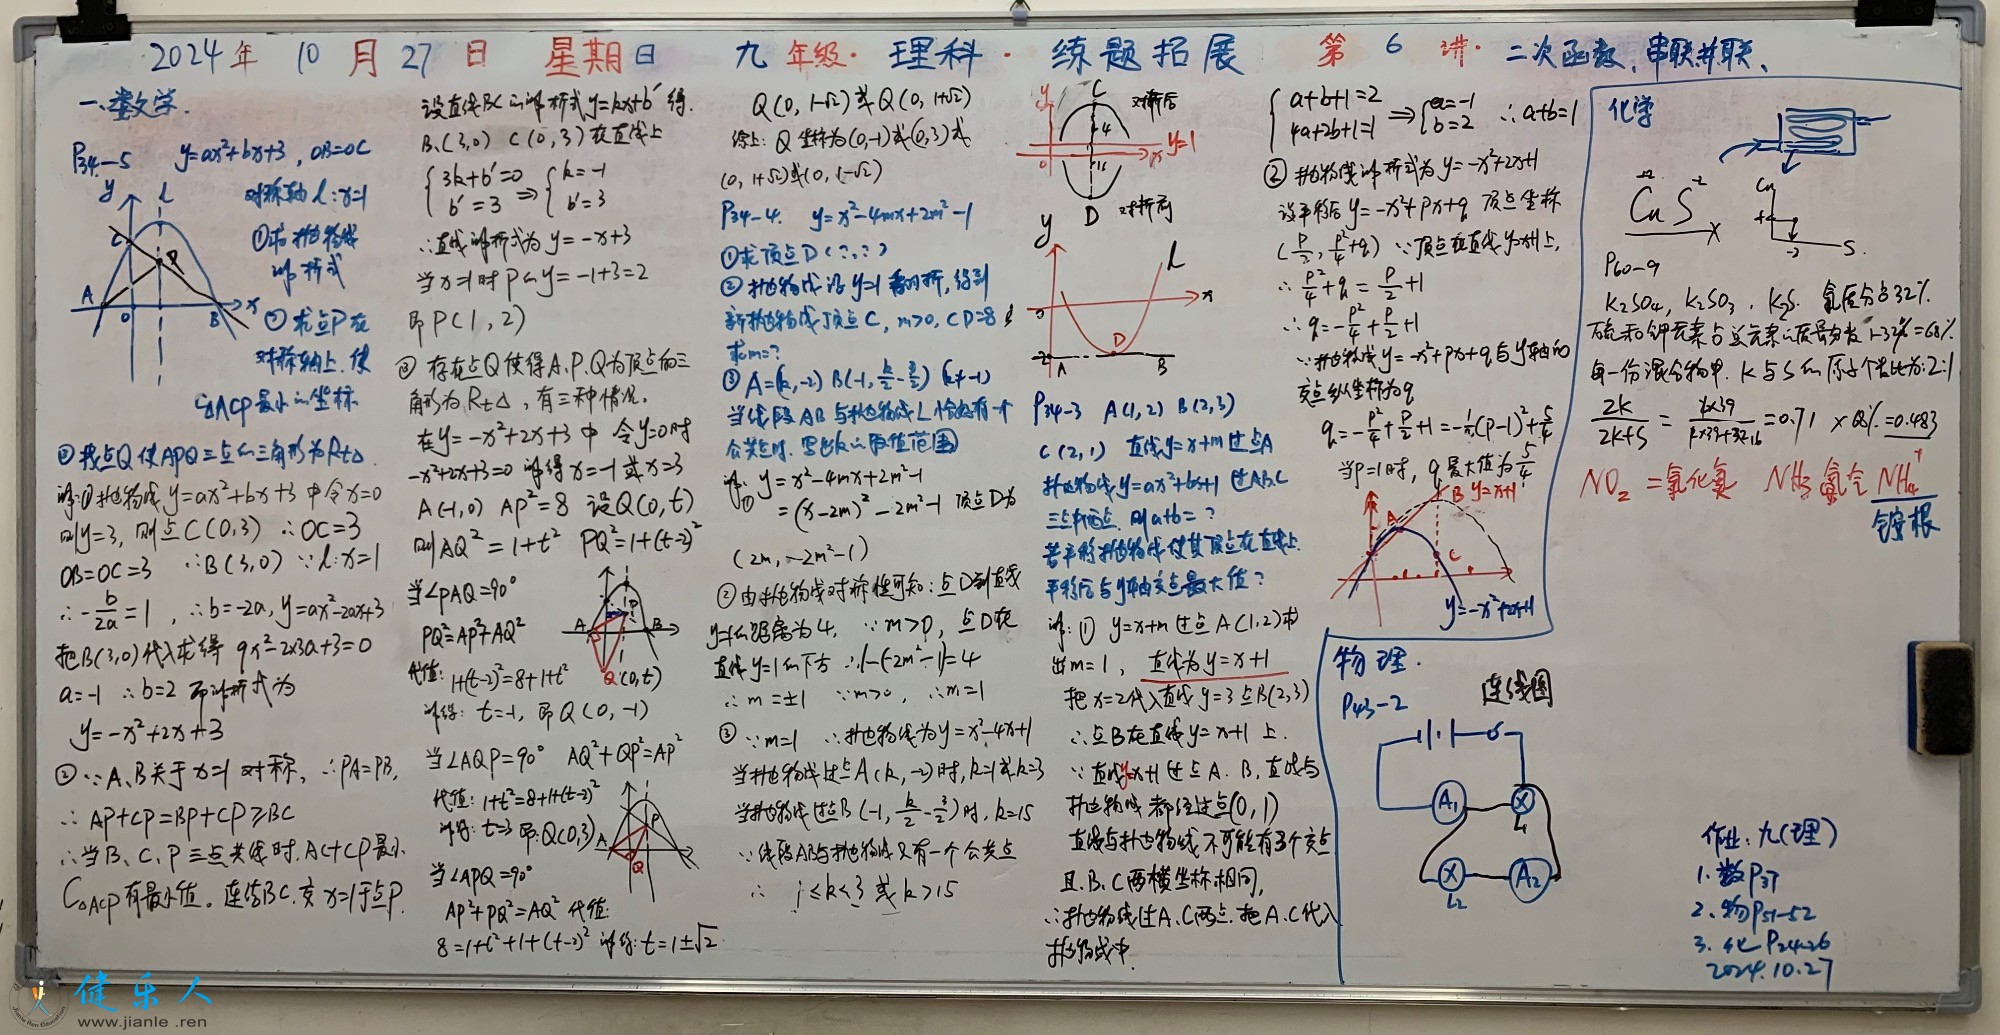 2024年 10月27日 星期日 九年级·理科·练题拓展 第6讲·二次函数、串联并联、
一、数学.
P34-5 y=ax²+bx+3, OB=OC
对称轴 l:x=1
①求抛物线
解析式
②求点P在
对称轴上.使
C△ACP最小的坐标
y
l
C
P
A
O
B
x
③找点Q使APQ三点的三角形为Rt△
解:①抛物线y=ax²+bx+3中令x=0
则y=3, 则点C(0,3) ∴OC=3
OB=OC=3 ∴B(3,0) ∵l:x=1
∴-b/2a=1, ∴b=-2a, y=ax²-2ax+3
把B(3,0)代入求得 9x²-2x3a+3=0
a=-1 ∴b=2 即解析式为
y=-x²+2x+3
②∵A、B关于x=1对称, ∴PA=PB,
∴AP+CP=BP+CP≥BC
∴当B、C、P三点共线时.AC+CP最小
C△ACP有最小值。连结BC.交x=1于点P.
设直线BC的解析式y=kx+b′得.
B.(3,0) C(0,3)在直线上
{3k+b′=0 b′=3 ⇒ {k=-1 b′=3
∴直线解析式为 y=-x+3
当x=1时P的y=-1+3=2
即P(1,2)
③存在点Q使得A.P.Q为顶点的三
角形为Rt△,有三种情况.
在y=-x²+2x+3中 令y=0时
-x²+2x+3=0 解得x=-1或x=3
A(-1,0) AP²=8 设Q(0,t)
则AQ²=1+t² PQ²=1+(t-2)²
当∠PAQ=90°
PQ²=AP²+AQ²
代值: 1+(t-2)²=8+1+t²
解得: t=-1, 即Q(0,-1)
A
P
B
Q(0,t)
当∠AQP=90° AQ²+QP²=AP²
代值: 1+t²=8+1+(t-2)²
解得: t=3 即:Q(0,3)
A
P
Q
当∠APQ=90°
AP²+PQ²=AQ² 代值:
8=1+t²+1+(t-2)² 解得:t=1±√2
Q(0,1-√2)或Q(0,1+√2)
综上:Q坐标为(0,-1)或(0,3)或
(0,1+√2)或(0,1-√2)
P34-4. y=x²-4mx+2m²-1
①求顶点D(?,?)
②抛物线沿y=1翻折,得到
新抛物线顶点C, m>0, CD=8
求m=?
③A=(k,-2) B(-1, k/2-3/2) (k≠-1)
当线段AB与抛物线L恰好有一个
公共点时.写出k的取值范围
解:y=x²-4mx+2m²-1
① =(x-2m)²-2m²-1 顶点D为
(2m, -2m²-1)
②由抛物线对称性可知:点D到直线
y=1的距离为4, ∵m>0, 点D在
直线y=1的下方 ∴1-(-2m²-1)=4
∴m=±1 ∵m>0, ∴m=1
③∵m=1 ∴抛物线为y=x²-4x+1
当抛物线过点A(k,-2)时,k=1或k=3
当抛物线过点B(-1, k/2-3/2)时,k=15
∵线段AB与抛物线只有一个公共点
∴ 1≤k<3或k>15
y
C
对折后
4
y=1
0
x
D
对折前
y
L
x
0
-2
A
D
B
P34-3 A(1,2) B(2,3)
C(2,1) 直线y=x+m过点A
抛物线y=ax²+bx+1过A.B.C
三点中两点 则a+b=?
若平移抛物线使其顶点在直线上.
平移后与y轴交点最大值?
解:① y=x+m过点A(1,2)求
出m=1, 直线为y=x+1
把x=2代入直线y=3点B(2,3)
∴点B在直线y=x+1上.
∵直线y=x+1过点A.B,直线与
抛物线都经过点(0,1)
直线与抛物线不可能有3个交点
且.B.C两横坐标相同,
∴抛物线过A.C两点.把A.C代入
抛物线中.
{a+b+1=2 4a+2b+1=1 ⇒ {a=-1 b=2 ∴a+b=1
②抛物线解析式为y=-x²+2x+1
设平移后y=-x²+px+q 顶点坐标
(p/2, p²/4+q) ∵顶点在直线y=x+1上,
∴p²/4+q=p/2+1
∴q=-p²/4+p/2+1
∵抛物线y=-x²+px+q与y轴的
交点纵坐标为q
q=-p²/4+p/2+1=-¼(p-1)²+5/4
当p=1时, q最大值为5/4
B y=x+1
A
C
y=-x²+2x+1
物理.
P43-2 连线图
A₁
L₁
L₂
A₂
化学
+2 -2
Cu S
Cu
S
P60-9
K₂SO₄, K₂SO₃, K₂S. 氧质分占32%.
每一份混合物中. K与S的原子个数比为:2:1
2K/2K+S = 2x39/2x39+32 =0.71 x68%=0.483
NO₂=氧化氮 NH₃氨气 NH₄⁺
铵根
作业:九(理)
1.数P37
2.物P51-52
3.化P24-26
2024.10.27
健乐人
www.jianle .ren